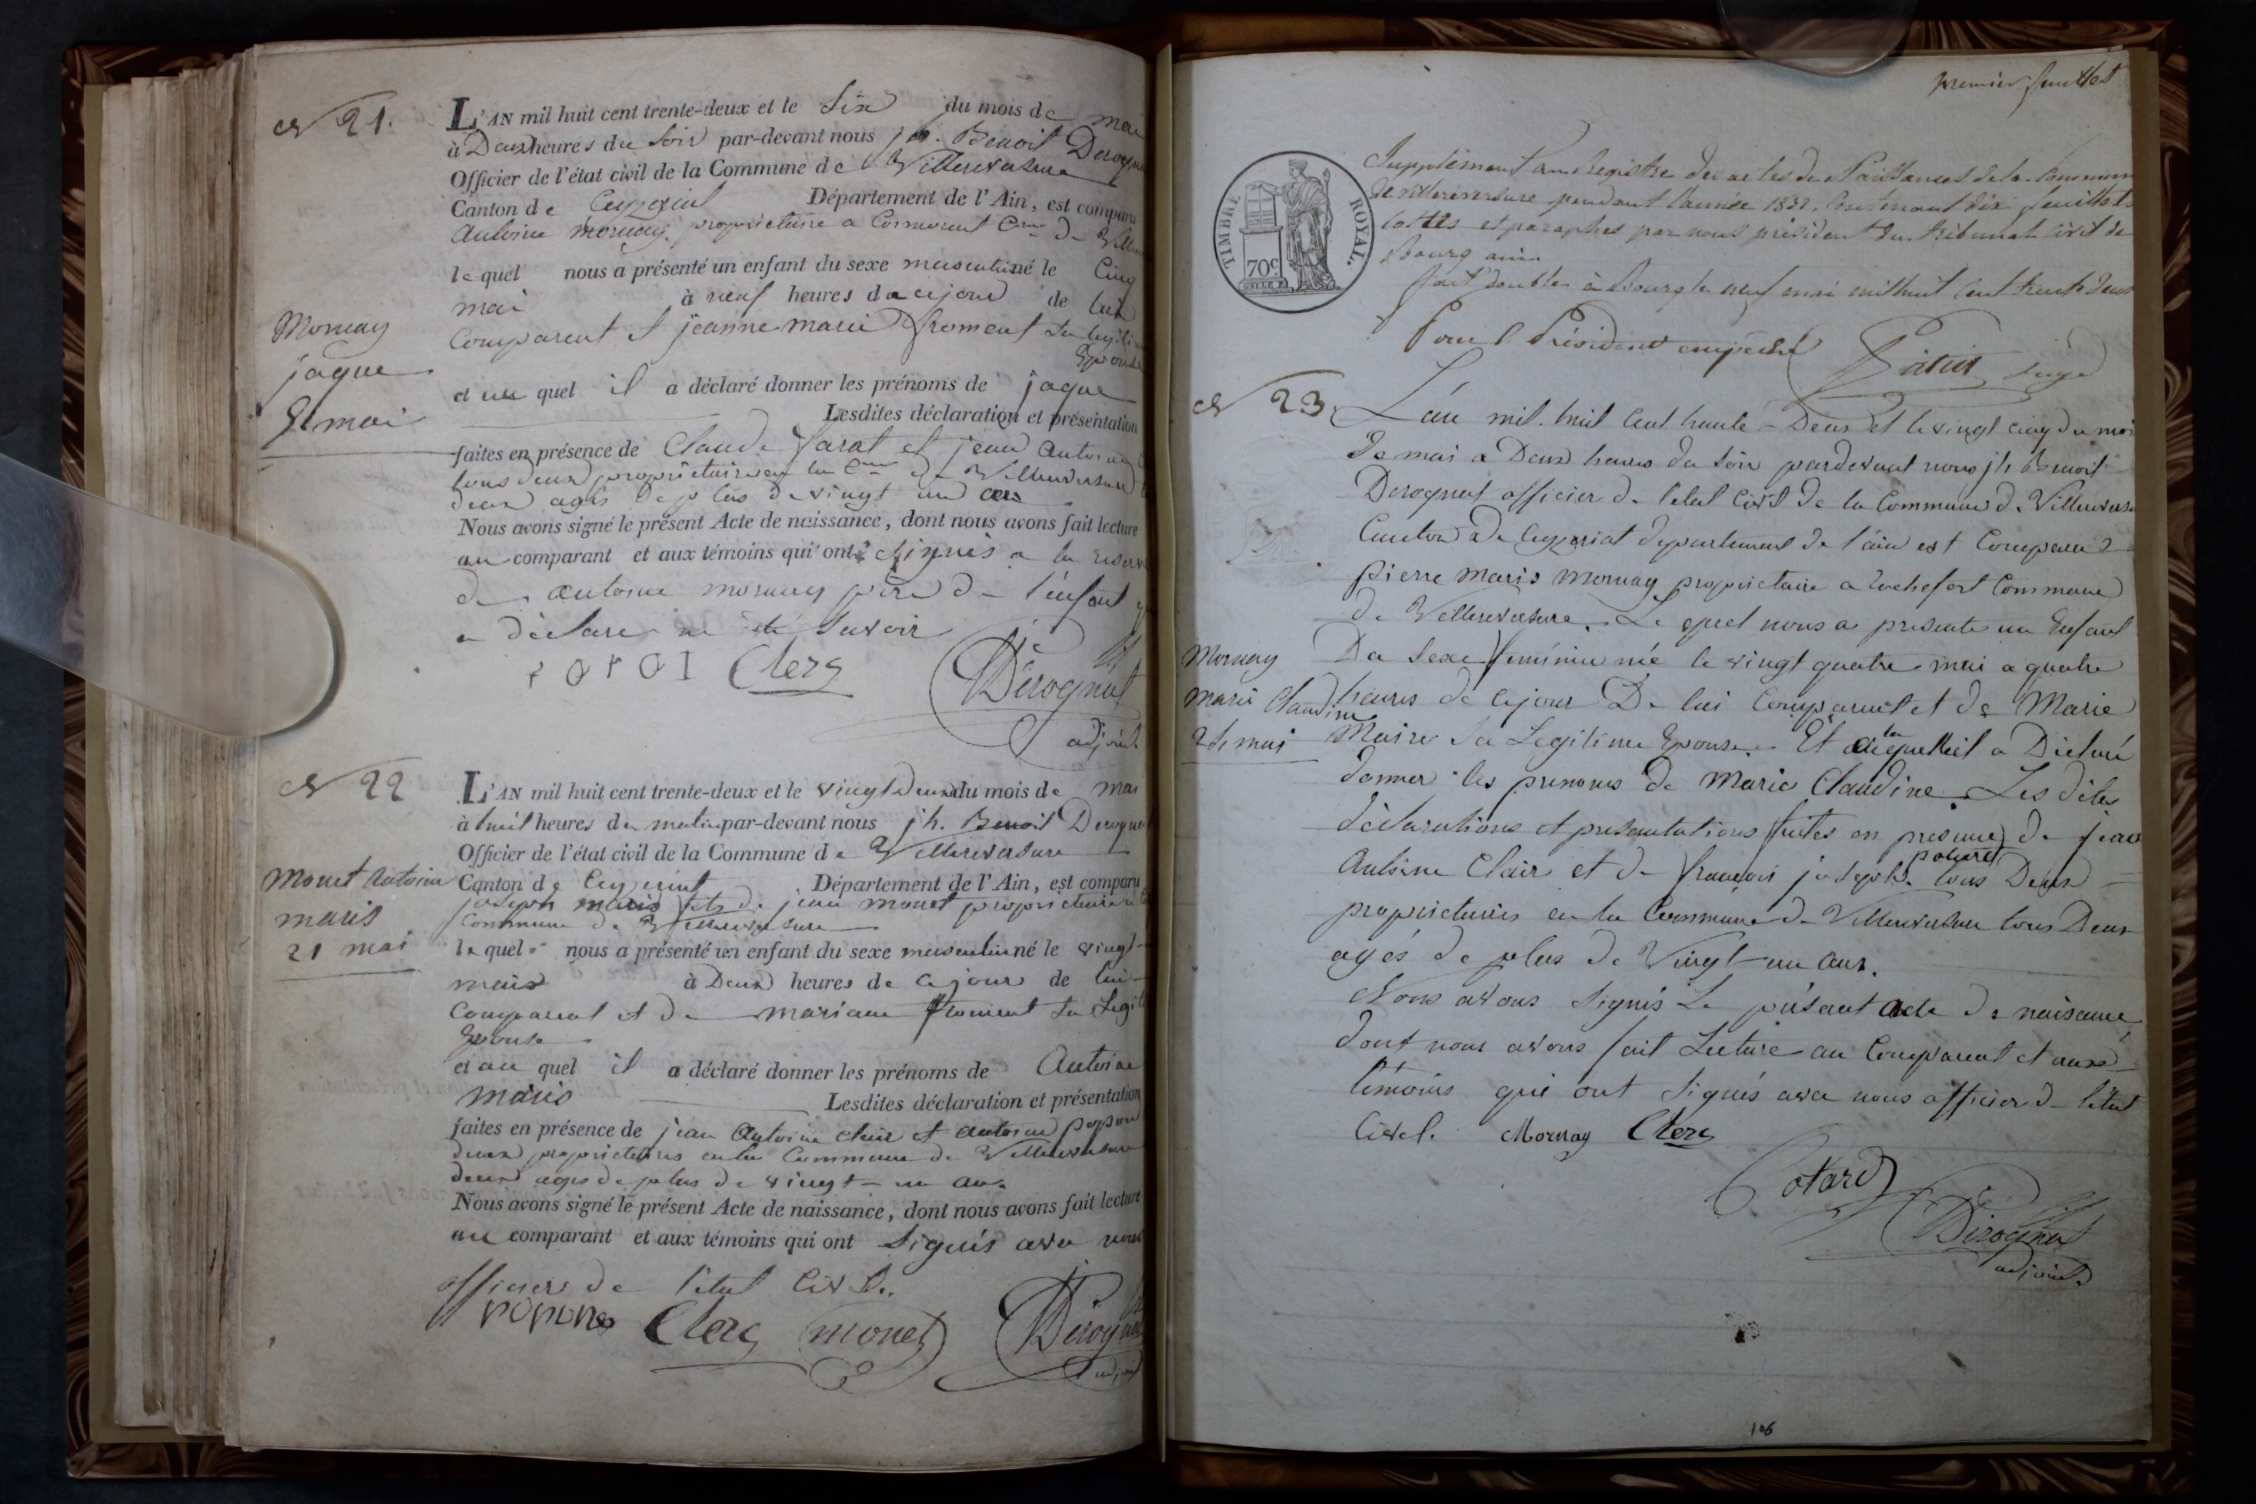 N 21.
L'AN mil huit cent trente-deux et le six du mois de mai
à Deux heures du soir par-devant nous jh. Benoit Derognat
Officier de l'état civil de la Commune de Villereversure
Canton de Ceyzeriat Département de l'Ain, est comparu
Antoine Mornay propriétaire a Cormorent Cne de
lequel nous a présenté un enfant du sexe masculin né le Cinq
mai à neuf heures de cejour de lui
Comparant et jeanne marie froment sa legitime
Epouse
et au quel il a déclaré donner les prénoms de jaque
Lesdites déclaration et présentation
faites en présence de Claude farat et jean antoine
tous deux propriétaires en la Cne de Villereversure
deux agés de plus de vingt un ans
Nous avons signé le présent Acte de naissance, dont nous avons fait lecture
au comparant et aux témoins qui ont signés a la reserve
de antoine mornay père de l'enfant
a déclaré ne savoir
Clerc
Derognat
adjoint
Mornay
jaque
5 mai
N 22
L'AN mil huit cent trente-deux et le vingt Deux du mois de mai
à huit heures du matin par-devant nous jh. Benoit Derognat
Officier de l'état civil de la Commune de Villereversure
Canton de Ceyzeriat Département de l'Ain, est comparu
joseph marie fils de jean monet propriétaire
Commune de Villereversure
lequel nous a présenté un enfant du sexe masculin né le vingt
mai à Deux heures de cejour de lui
Comparant et de mariane froment sa Legi
Epouse
et au quel il a déclaré donner les prénoms de Antoine
marie
Lesdites déclaration et présentation
faites en présence de jean Antoine clair et antoine popon
deux propriétaires en la Commune de Villereversure
deux agés de plus de vingt un ans
Nous avons signé le présent Acte de naissance, dont nous avons fait lecture
au comparant et aux témoins qui ont signés avec nous
officier de l'état Civil.
popon Clerc monet Derognat
adjoint
Monet Antoine
marie
21 mai
premier feuillet
TIMBRE ROYAL.
70c
Supplément au Registre des actes de Naissances de la Commune
de Villereversure pendant l'année 1832. Contenant dix feuillets
cottés et paraphés par nous président du tribunal civil de
Bourg ain.
fait double à Bourg le neuf mai mil huit cent trente deux
Pour le Président empeché
juge
N 23.
L'an mil huit cent trente-Deux et le vingt cinq du mois
De mai a Deux heures du soir pardevant nous jh Benoit
Derognat officier de l'etat Civil de la Commune de Villereversure
Canton de Ceyzeriat departement de l'ain est Comparu
pierre marie mornay propriétaire a Rochefort Commune
de Villereversure. Le quel nous a presenté un Enfant
Du sexe féminin née le vingt quatre mai a quatre
heures de cejour De lui Comparant et de Marie
Maire sa Legitime Epouse. Et a laquelle il a Déclaré
donner les prenoms de Marie Claudine. Les dites
déclarations et presentations faites en presence de jean
Antoine Clair et de françois joseph potard tous Deux
proprietaires en la Commune de Villereversure tous Deux
agés de plus de Vingt un ans.
Nous avons signés Le présent acte de naissance,
dont nous avons fait Lecture au Comparant et aux
témoins qui ont signés avec nous officier de l'état
Civil. Mornay Clerc
Potard
Derognat
adjoint
Mornay
marie Claudine
24 mai
106